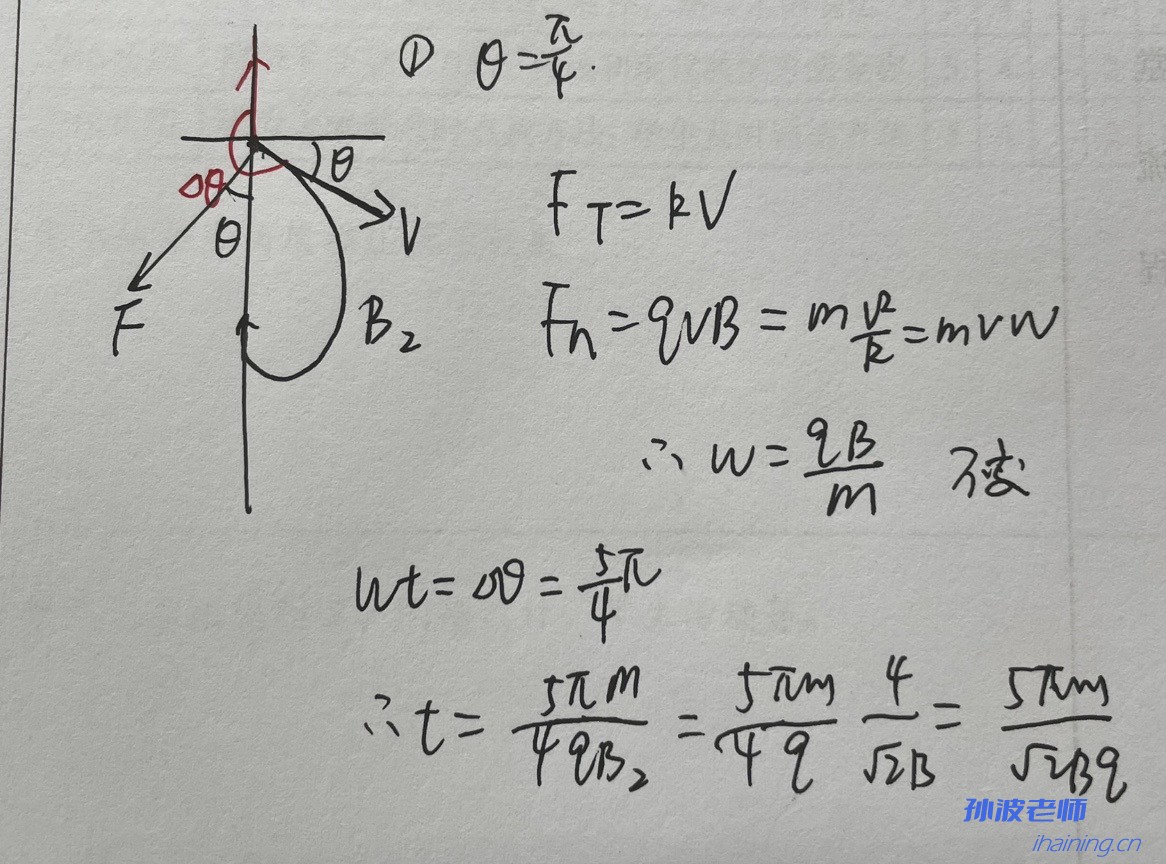 ① θ=π/4.
θ
Δθ
θ
V
F
B₂
F_T=kV
F_n=qVB=m V²/R=mVW
∴ W=qB/m 不变
Wt=Δθ=5/4 π
∴t=5πm/4qB₂=5πm/4q 4/√2B=5πm/√2Bq
孙波老师
ihaining.cn